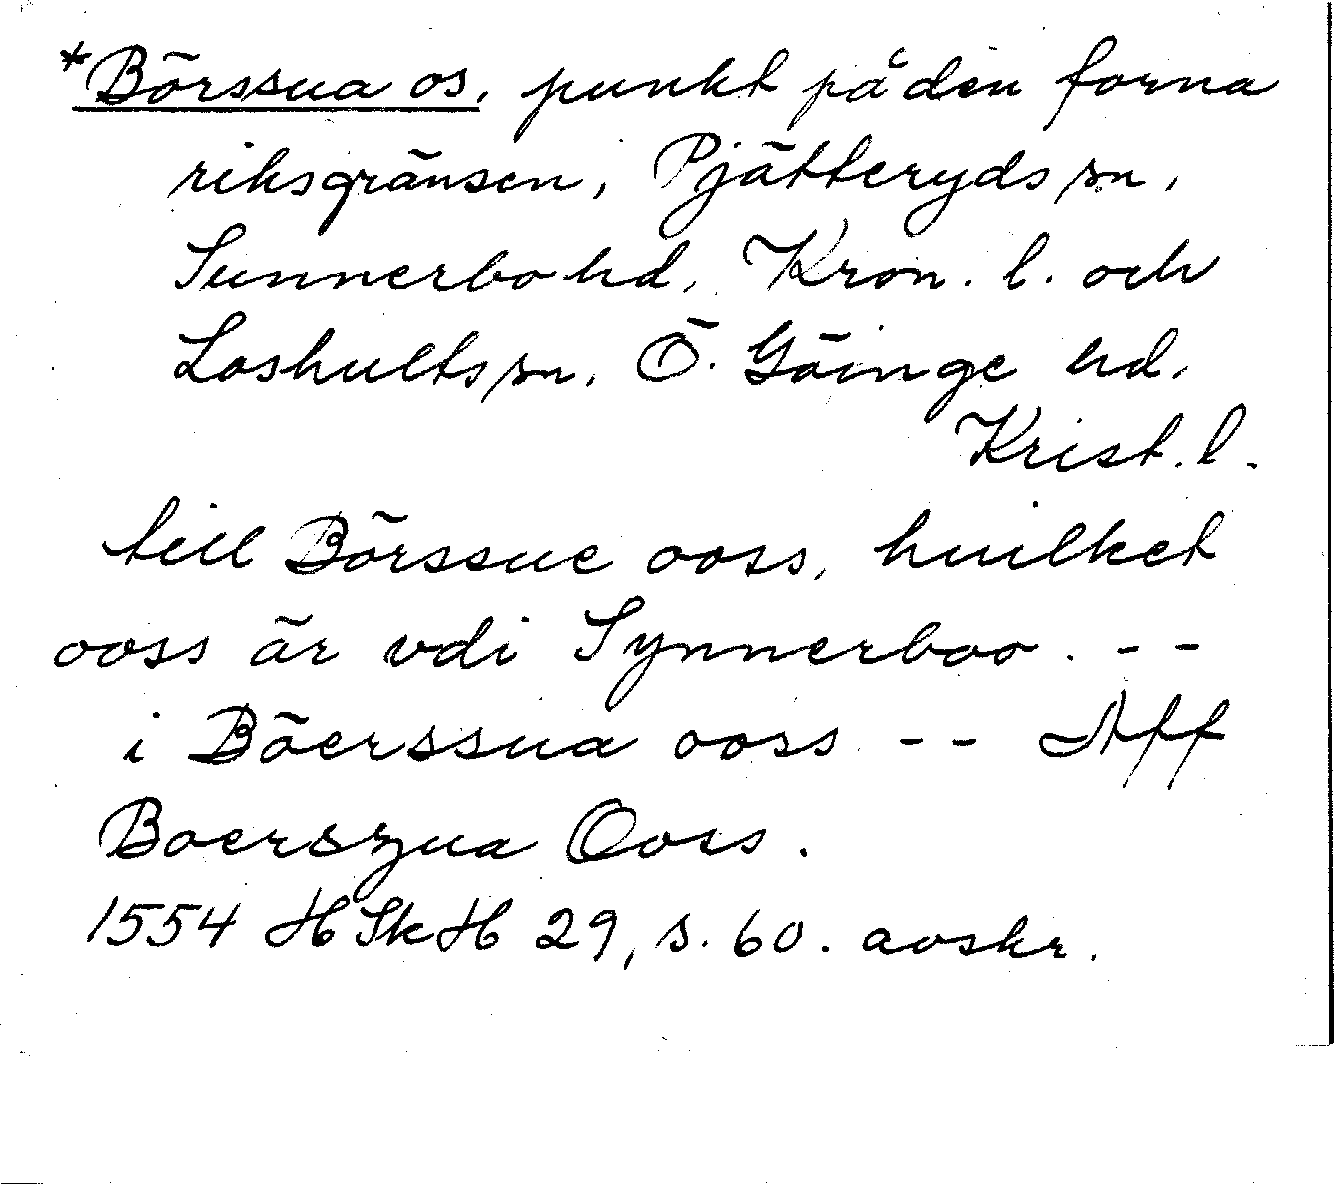 *Börssua os, punkt på den forna
riksgränsen, Pjätteryds sn,
Sunnerbo hd, Kron. l. och
Loshults sn, Ö. Göinge hd,
Krist. l.
till Börssue ooss, huilket
ooss är vdi Synnerboo. --
i Böerssua ooss -- Aff
Boerszua Ooss.
1554 HSkH 29, s. 60. avskr.